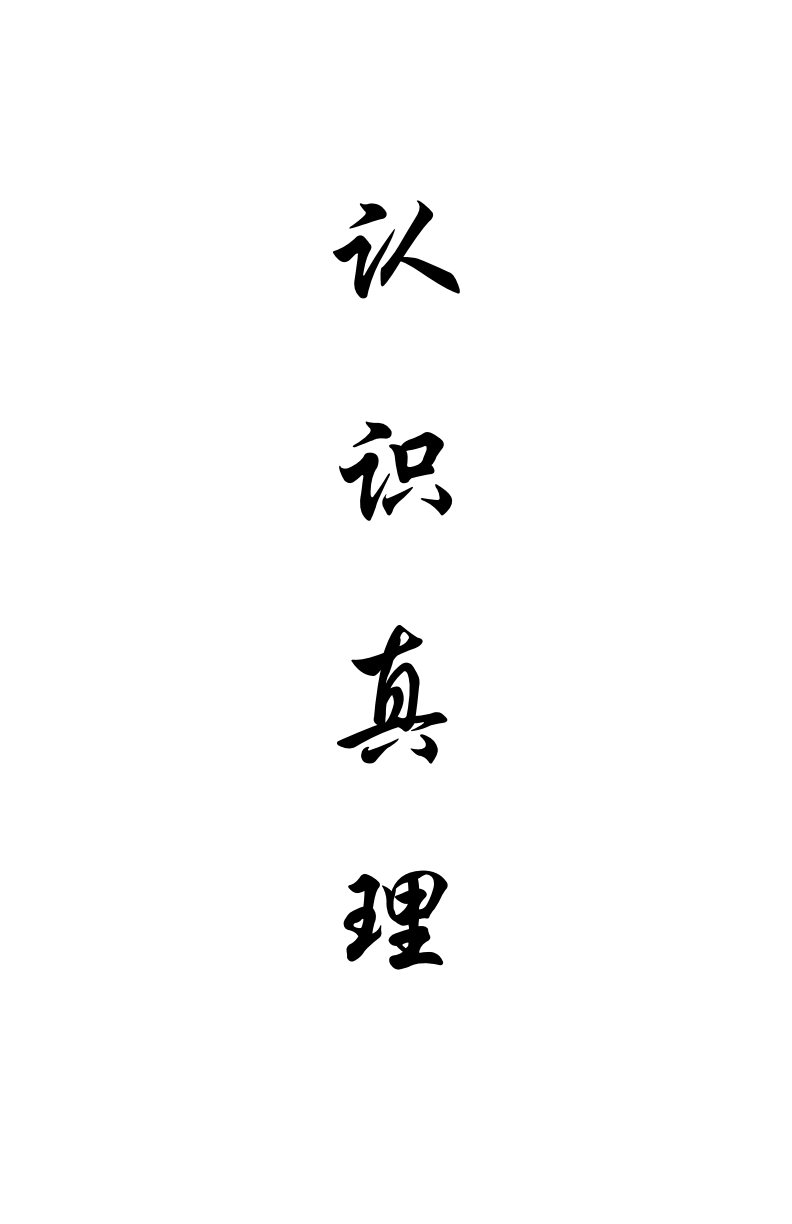 认识真理